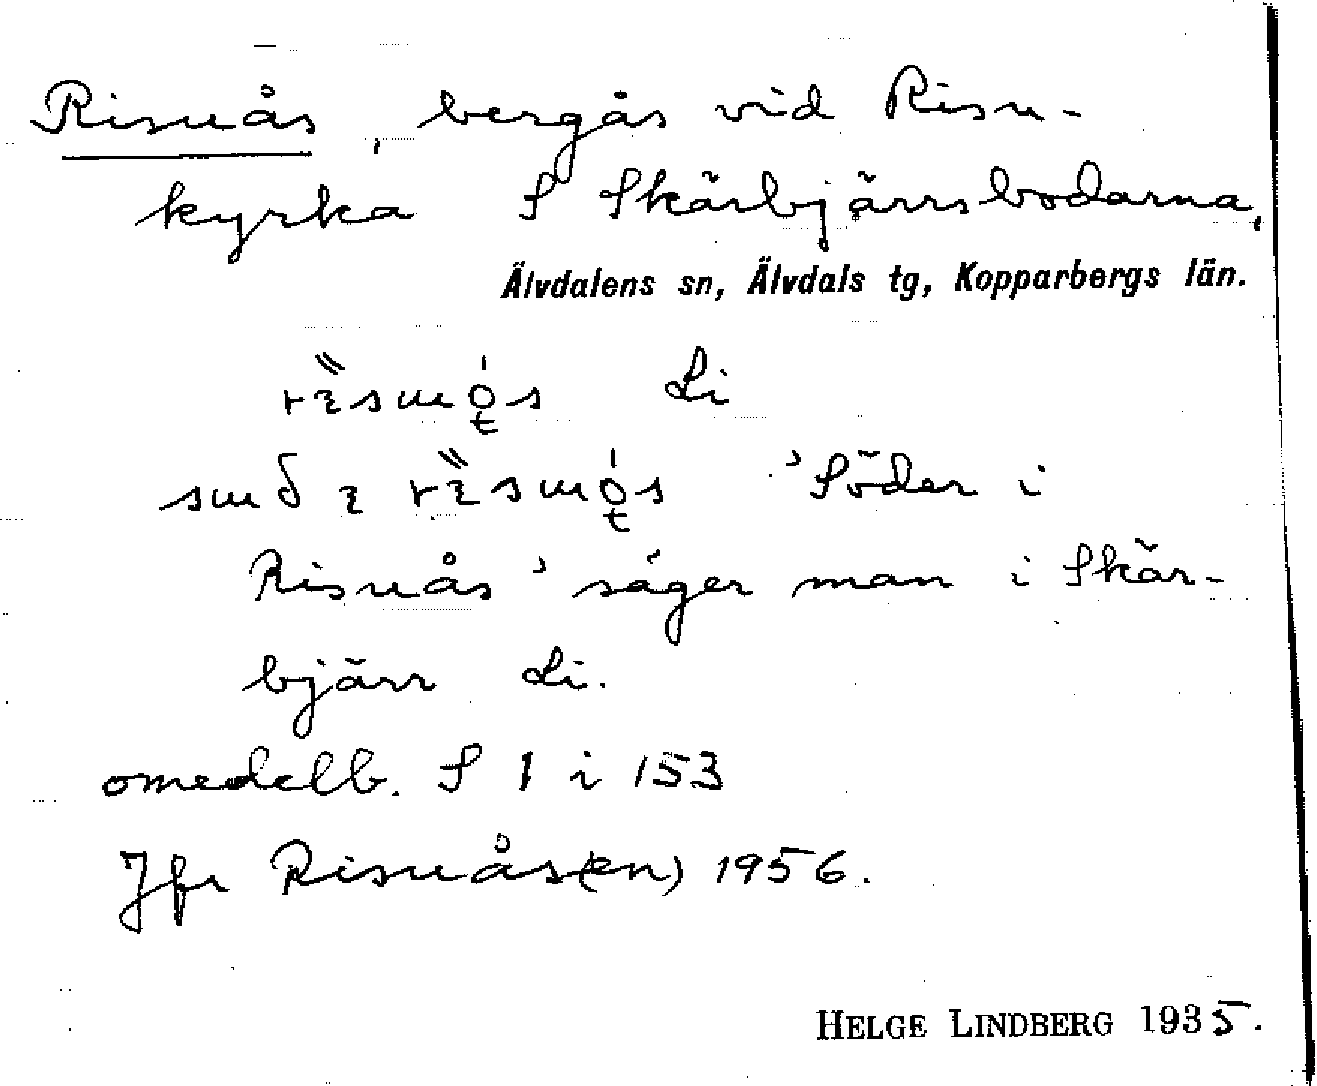 Risnås, bergås vid Risn-
kyrka S Skärbjärrsbodarna,
Älvdalens sn, Älvdals tg, Kopparbergs län.
Li
'Söder i
Risnås' säger man i Skär-
bjärr Li.
omedelb. S 1 i 153
Jfr Risnås(en) 1956.
HELGE LINDBERG 1935.